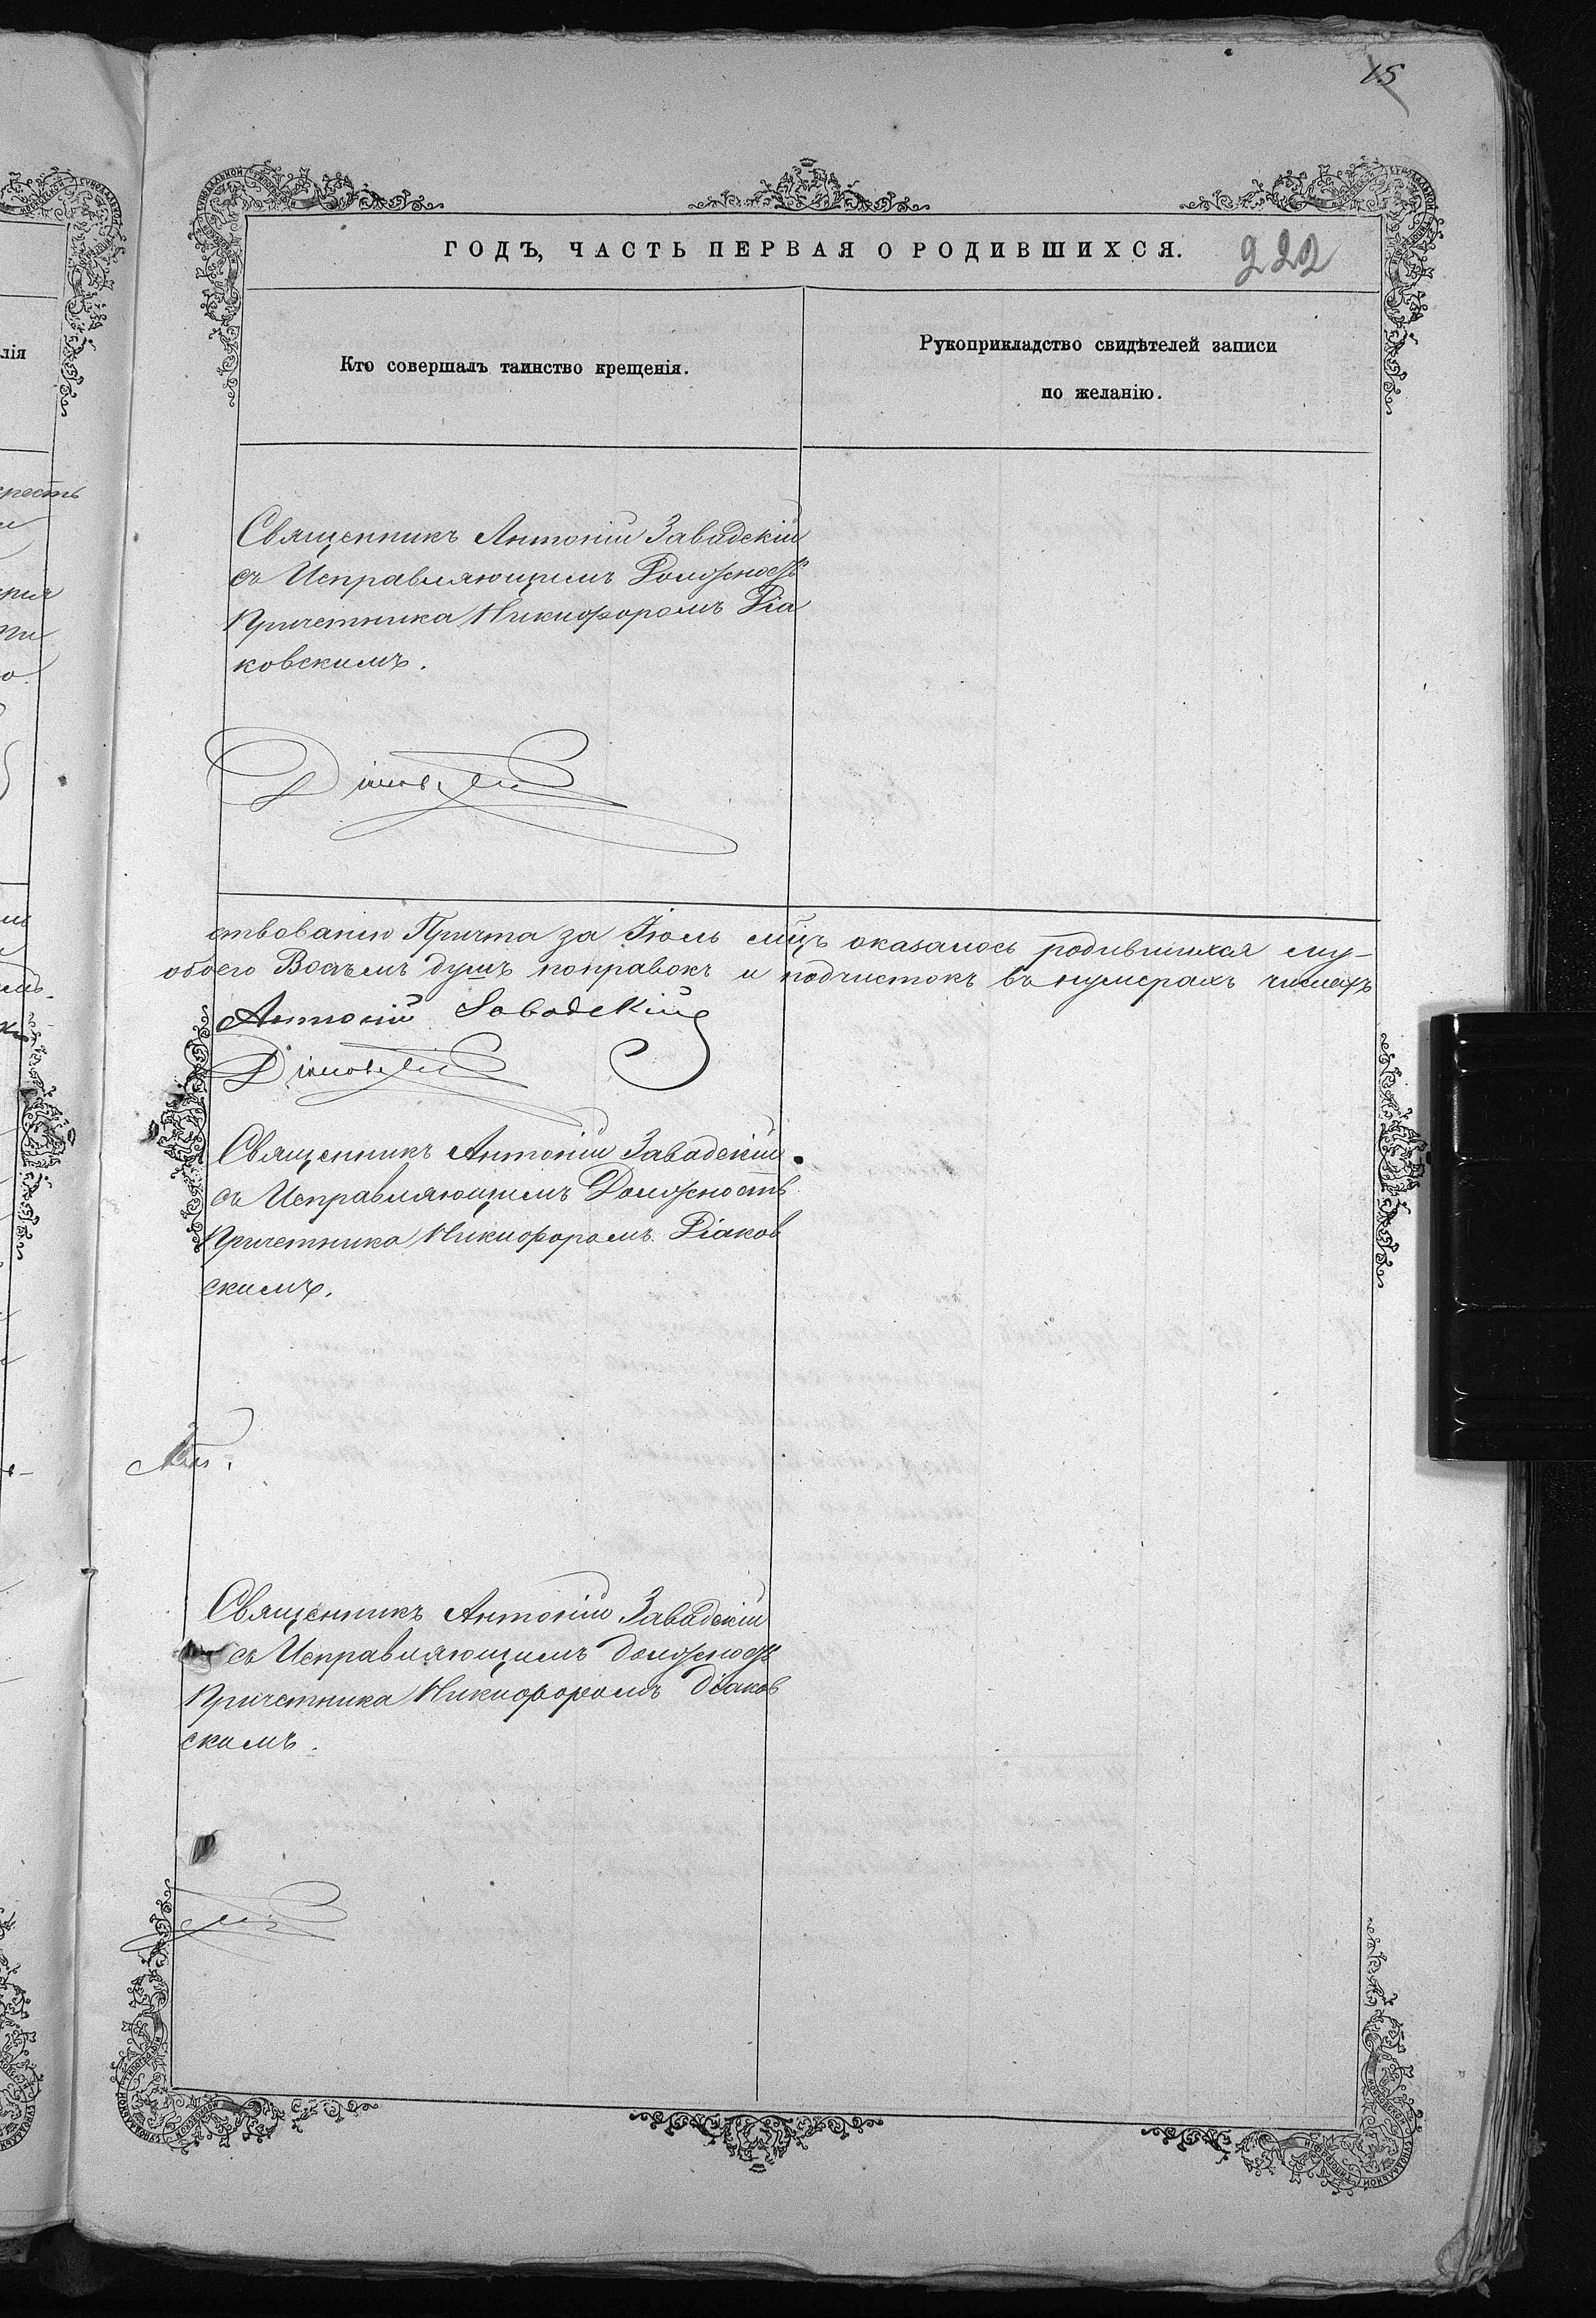 15
ГОДЪ, ЧАСТЬ ПЕРВАЯ О РОДИВШИХСЯ.
222
Кто совершалъ таинство крещенія.
Рукоприкладство свидѣтелей записи
по желанію.
лія
Священникъ Антоній Завадскій
съ Исправляющимъ Должность
Причетника Никифоромъ Діа
ковскимъ.
ствованію Причта за Іюль мцъ оказалось родившихся му-
обоего Восѣмъ душъ поправокъ и подчистокъ въ нумерахъ числахъ
Антоній Завадскій
Священникъ Антоній Завадскій
съ Исправляющимъ Должность
Причетника Никифоромъ Діаков
скимъ.
Священникъ Антоній Завадскій
съ Исправляющимъ должность
Причетника Никифоромъ діаков
скимъ.